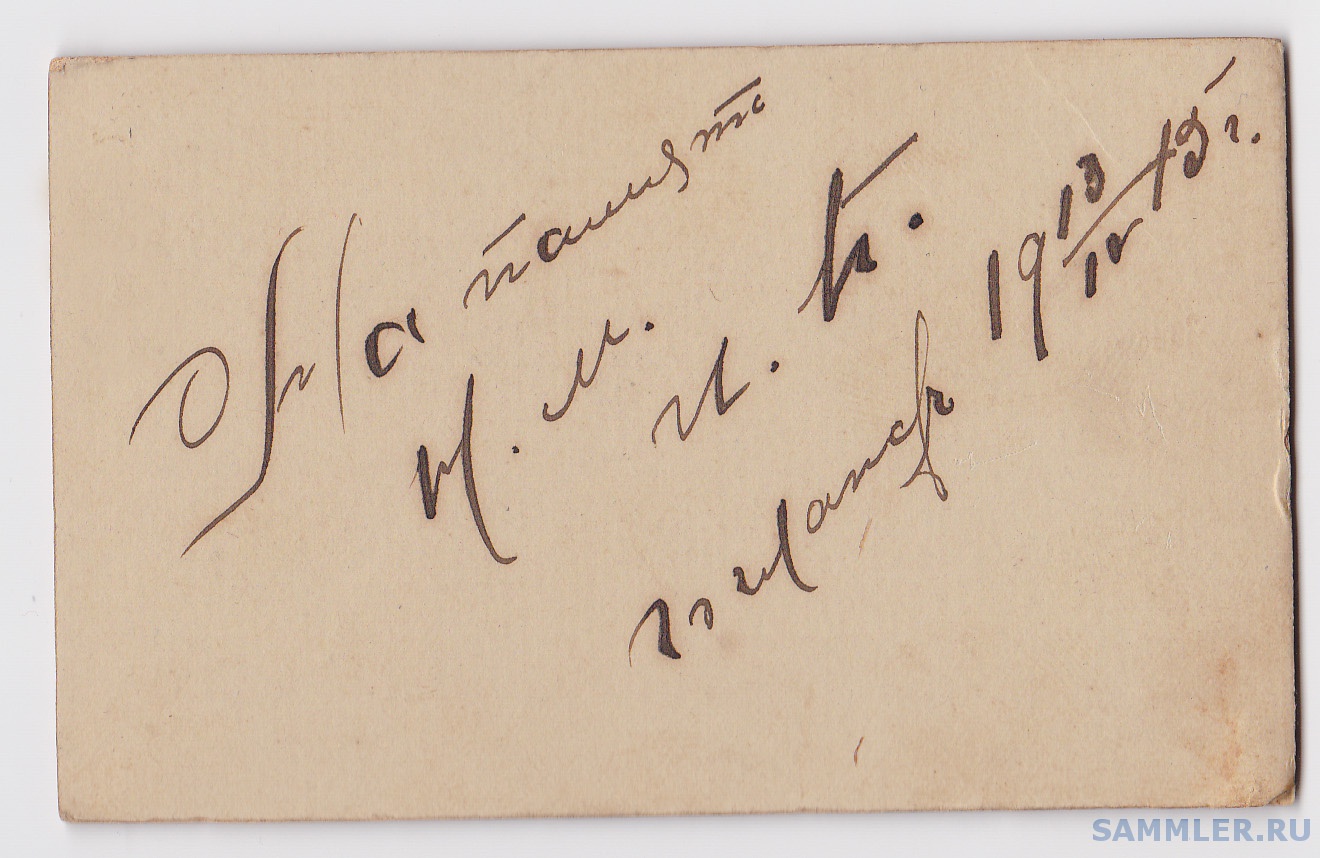 На память
Н. М.
И. Б.
19 13/IV 15 г.
SAMMLER.RU